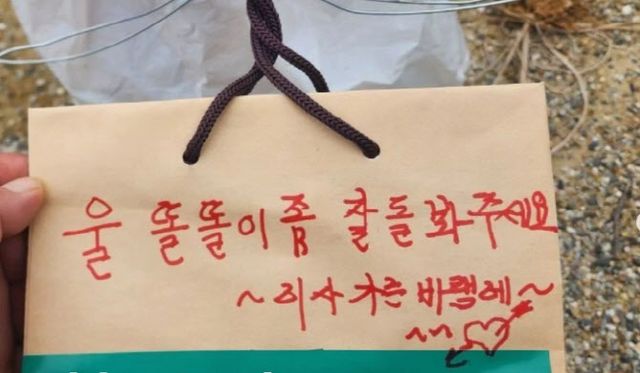 울 똘똘이 좀 잘 돌봐주세요
~ 이사 가는 바램에 ~